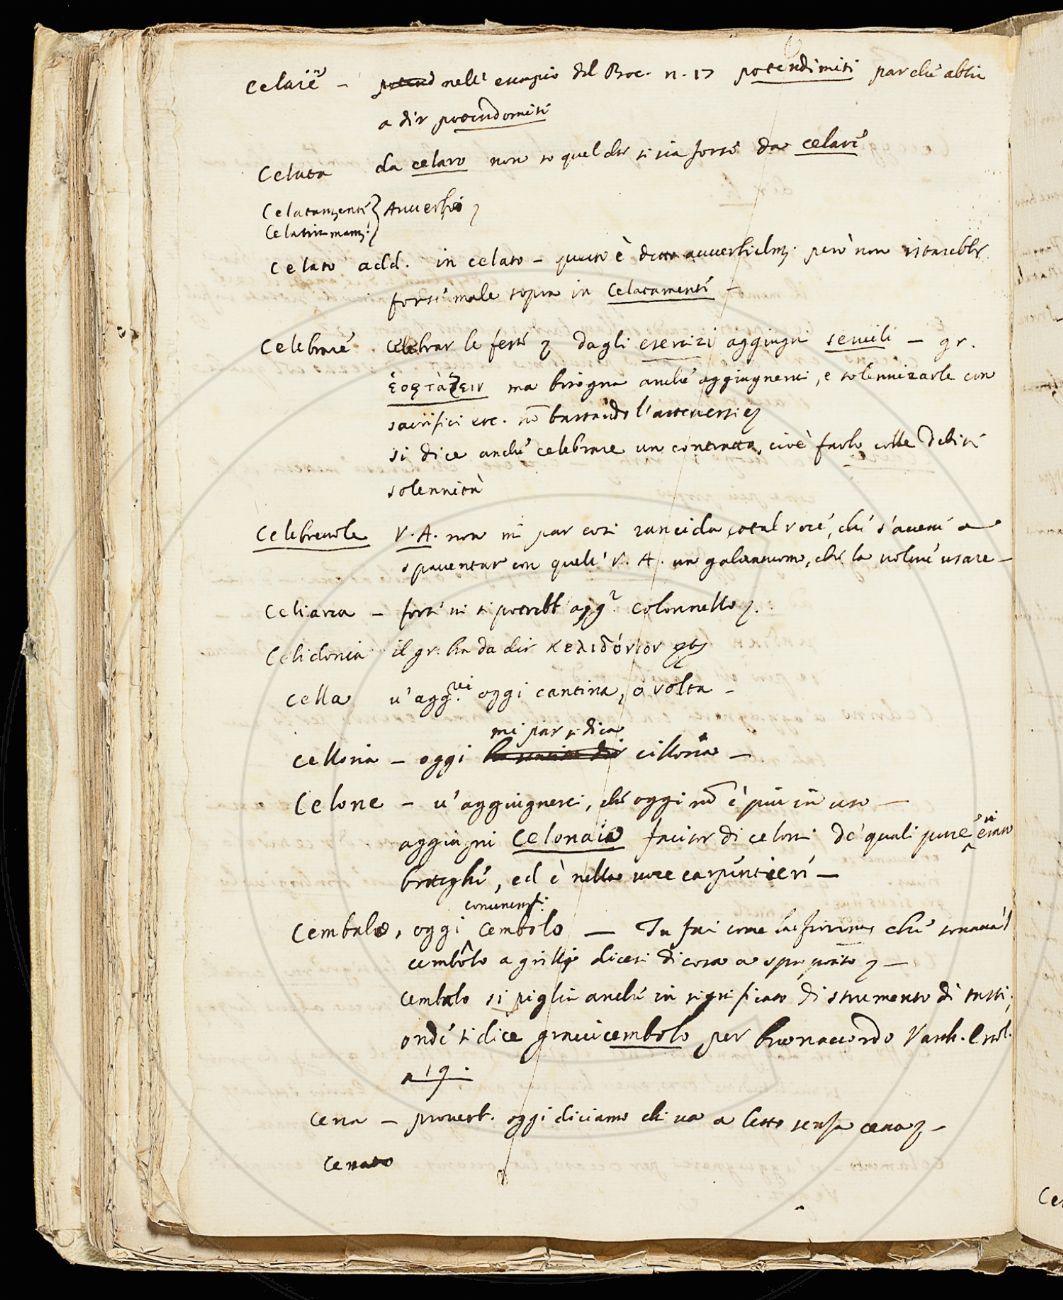 Celare – nell' esempio del Boc. n. 17 potendimiti par che abbi
a dir potendomiti
Celata da celaro non so quel che si sia forse da celare
Celatamente Avverbi
Celatissimamente
Celato add. in celato – questo è detto avverbialm. però non istarebbe
forse male sopra in Celatamente –
Celebrare celebrar le feste dagli esercizi aggiugni servili – gr.
ἑορτάζειν ma bisogna anche aggiugnerci, e solennizarle con
sacrifici etc. nõ bastando l'astenersi
si dice anche celebrare un contratto, cioè farlo colle debite
solennità
Celebrevole V. A. non mi par così rancida cotal voce, che s'avesse a
spaventar con quell' V. A. un galantuomo, che la volesse usare –
Celiarca – forse vi si potrebb' agg.e colonnello
Celidonia il gr. ha da dir χελιδόνιον
Cella v'agg. oggi cantina, o volta –
mi par si dica
Celloria – oggi cilloria –
Celone – v'aggiugnerei, che oggi nõ è più in uso –
aggiugni Celonaio facitor di celoni de' quali pure vi
botteghe, ed è nella voce carpentieri –
comunem.e
Cembalo, oggi cembolo – Tu fai come che sonava 'l
cembolo a grilli dicesi di cosa a sproposito –
cembalo si piglia anche in significato di strumento di tasti,
onde si dice gravicembolo per buonaccordo Varch. Ercol.
Cena – proverb. oggi diciamo chi va a letto senza cena –
Cenato